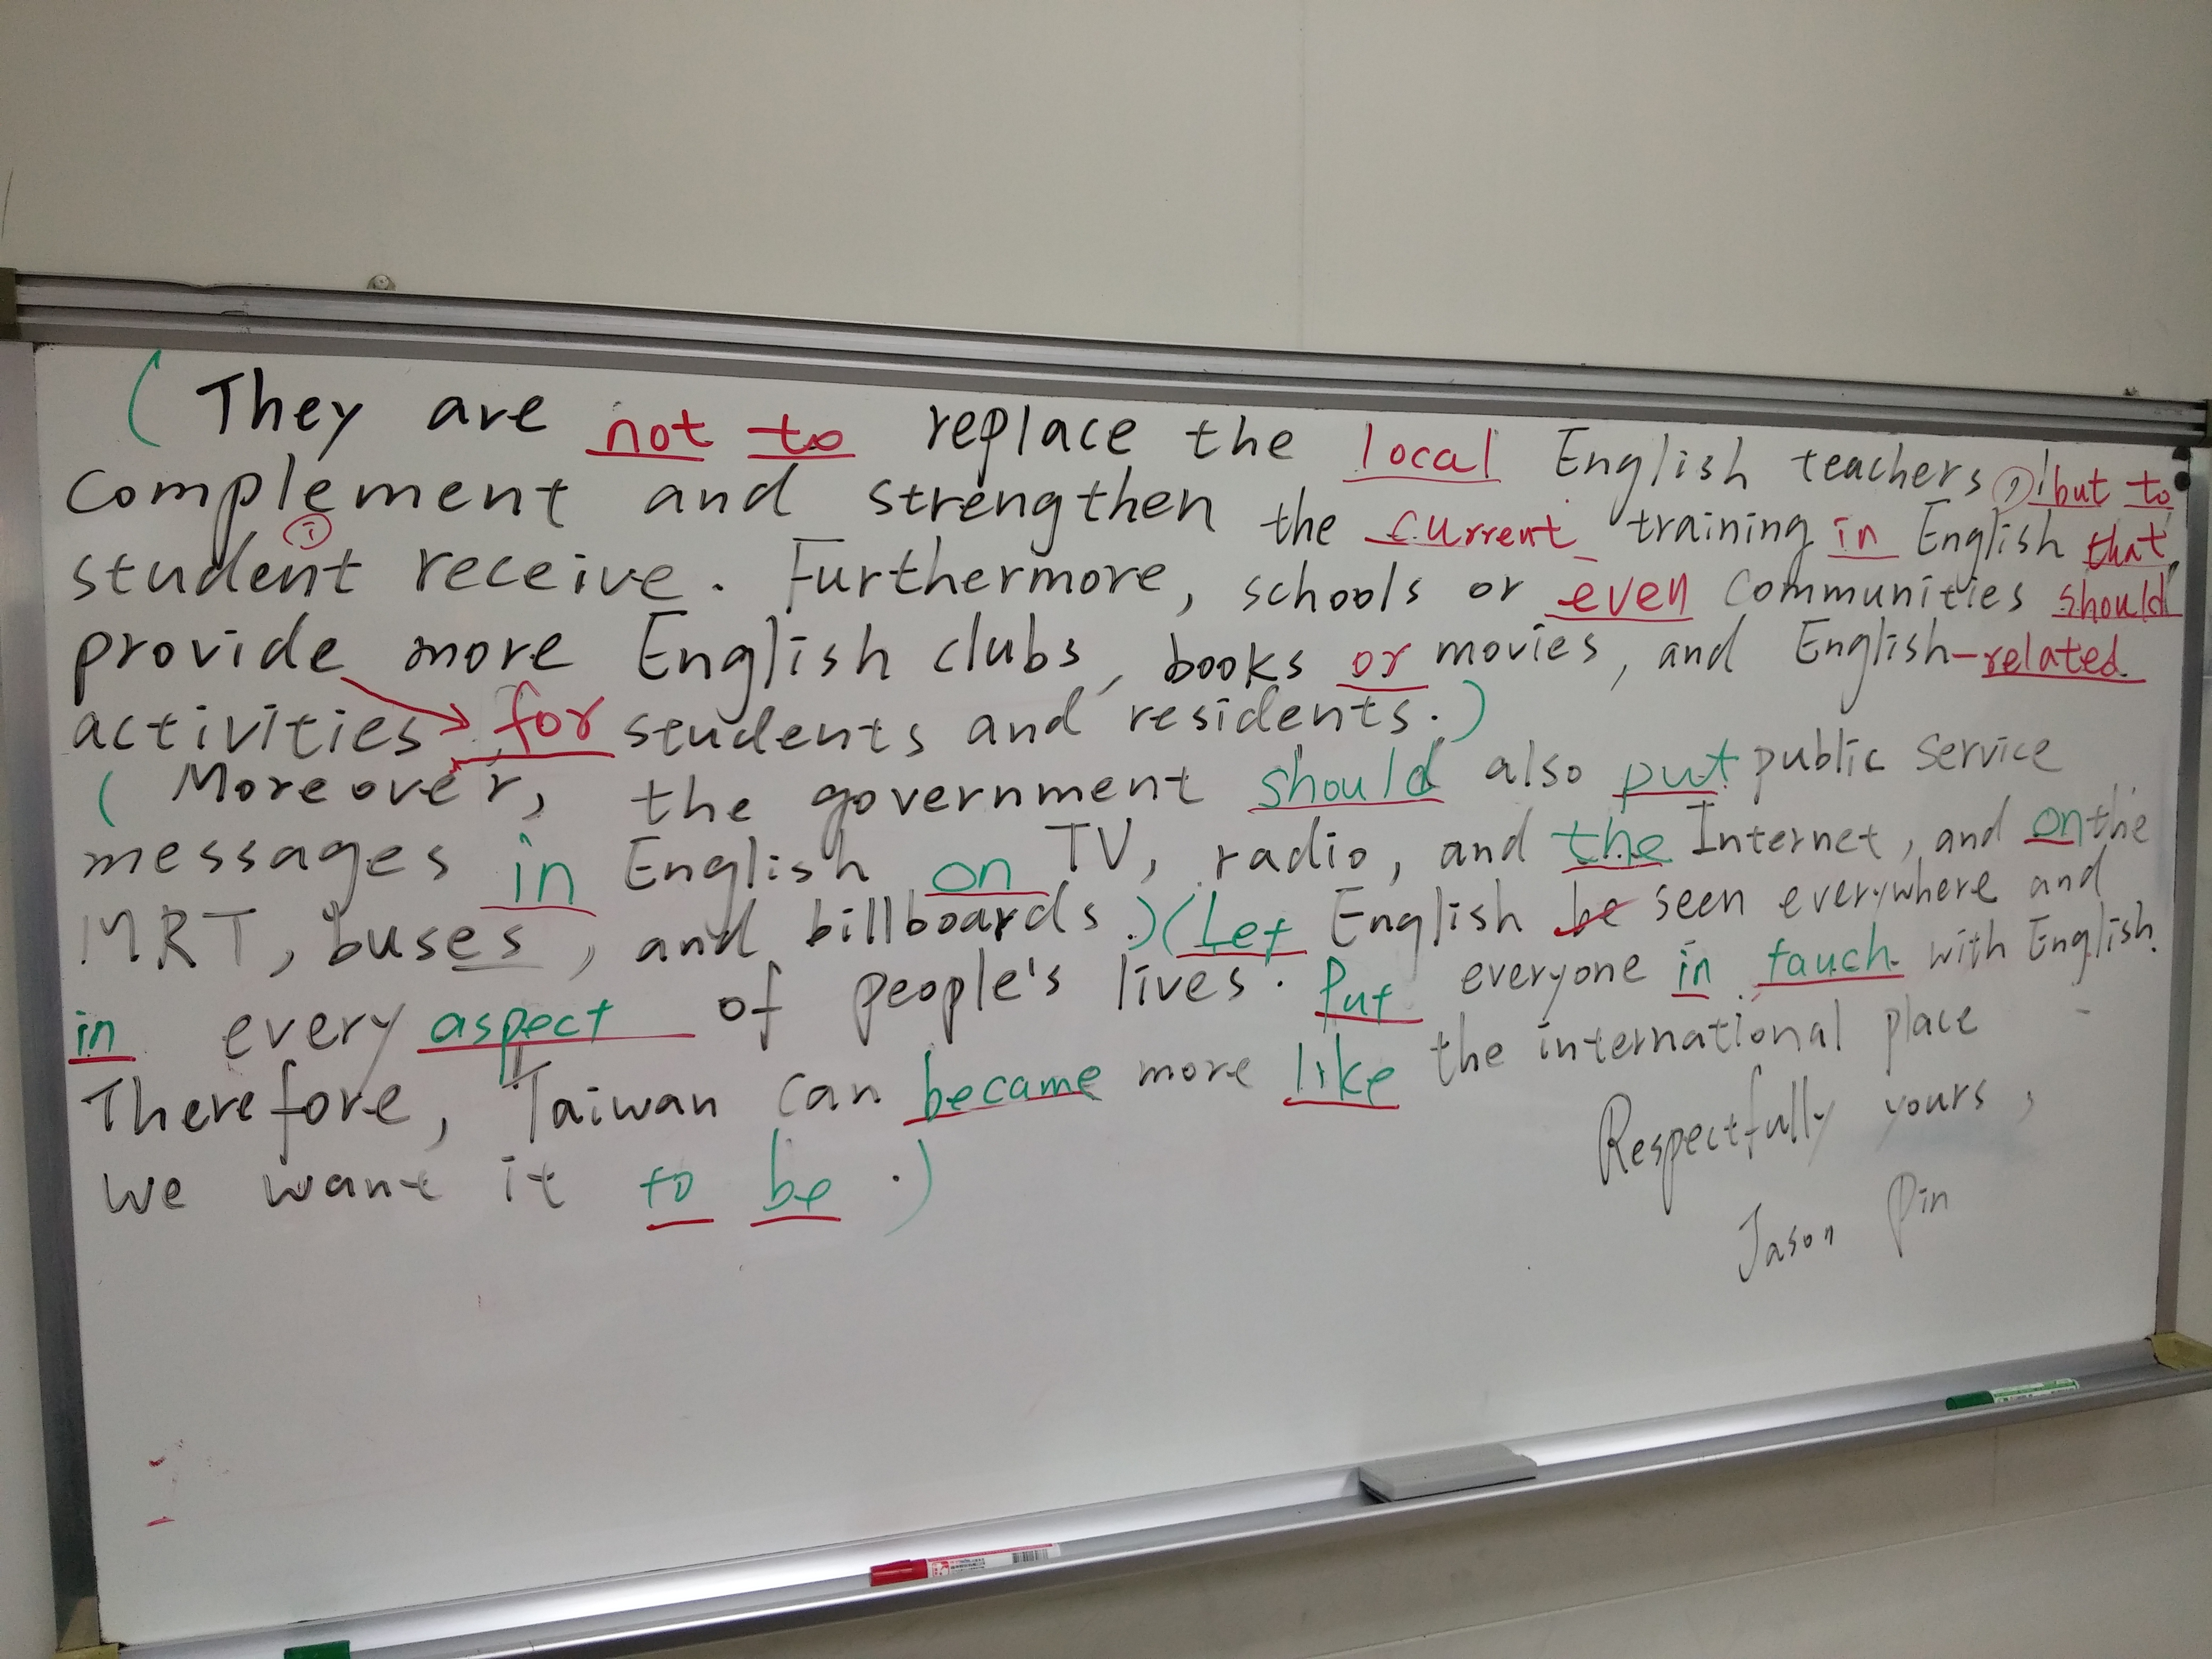 ( They are not to replace the local English teachers, but to
complement and strengthen the current training in English that
student receive. Furthermore, schools or even communities should
provide more English clubs, books or movies, and English-related
activities for students and residents. )
( Moreover, the government should also put public service
messages in English on TV, radio, and the Internet, and on the
MRT, buses, and billboards. ) ( Let English be seen everywhere and
in every aspect of people's lives. Put everyone in tauch with English.
Therefore, Taiwan can became more like the international place
we want it to be . )
Respectfully yours,
Jason Pin